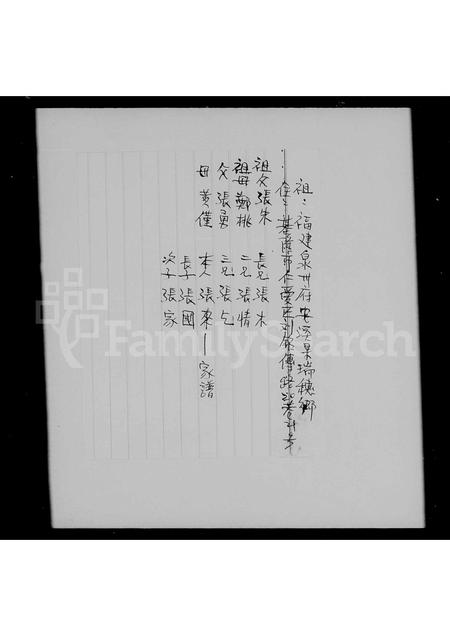 祖：福建泉州府安溪県瑞穂鄉
住：基隆市仁愛區劉銘傳路
祖父張朱 長兄張木
祖母鄭桃 二兄張情
父張勇 三兄張乞
母黃僅 本人張來－家譜
長子張國
次子張家
FamilySearch